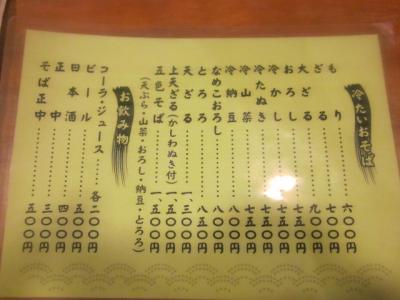 冷たいおそば
もり……六〇〇円
ざる……七〇〇円
大ざる……九〇〇円
おろし……七五〇円
冷かし……七五〇円
冷たぬき……七五〇円
冷山菜……七五〇円
冷納豆……八〇〇円
なめこおろし……八五〇円
とろろ……八五〇円
天ざる……一、三〇〇円
上天ざる(かしわぬき付)……一、五〇〇円
五色そば……一、五〇〇円
(天ぷら・山菜・おろし・納豆・とろろ)
お飲み物
コーラ・ジュース……各二〇〇円
ビール……五〇〇円
日本酒……五〇〇円
正中……四〇〇円
そば正中……五〇〇円